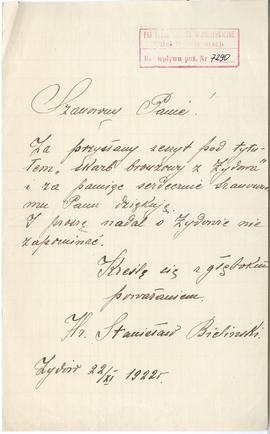 Nr 7290
Szanowny Panie!
Za przysłany zeszyt pod tytu-
łem „Skarb bronzowy z Żydowa"
i za pamięć serdecznie szanowne-
mu Panu dziękuję.
I proszę nadal o Żydowie nie
zapominać.
Kreślę się z głębokim
poważaniem
Hr. Stanisław Bieliński.
Żydów 22/XI 1922 r.